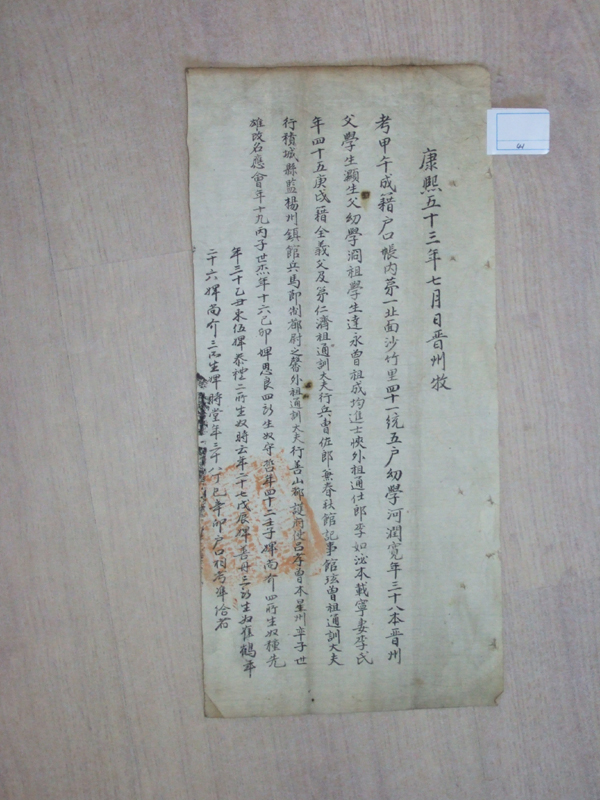 康熙五十三年七月日晋州牧
考甲午成籍戶口帳內第一北面沙竹里四十一統五戶幼學河潤寬年三十八本晋州
父學生灝生父幼學澗祖學生達永曾祖成均進士悏外祖通仕郎李如泓本載寧妻李氏
年四十五庚戌籍全義父及第仁濟祖通訓大夫行兵曹佐郎兼春秋館記事館玹曾祖通訓大夫
行積城縣監楊州鎮館兵馬節制都尉之馨外祖通訓大夫行善山都護府使呂孝曾本星州率子世
雄改名應會年十九丙子世烝年十六己卯婢思良四所生奴守 年四十二壬子婢尚介四所生奴種先
年三十乙丑束伍婢泰禮二所生奴時云年二十七戊辰婢善丹三所生奴雀鶴年
二十六婢尚介三所生婢時堂年三十八丁巳等卯戶口相準給者